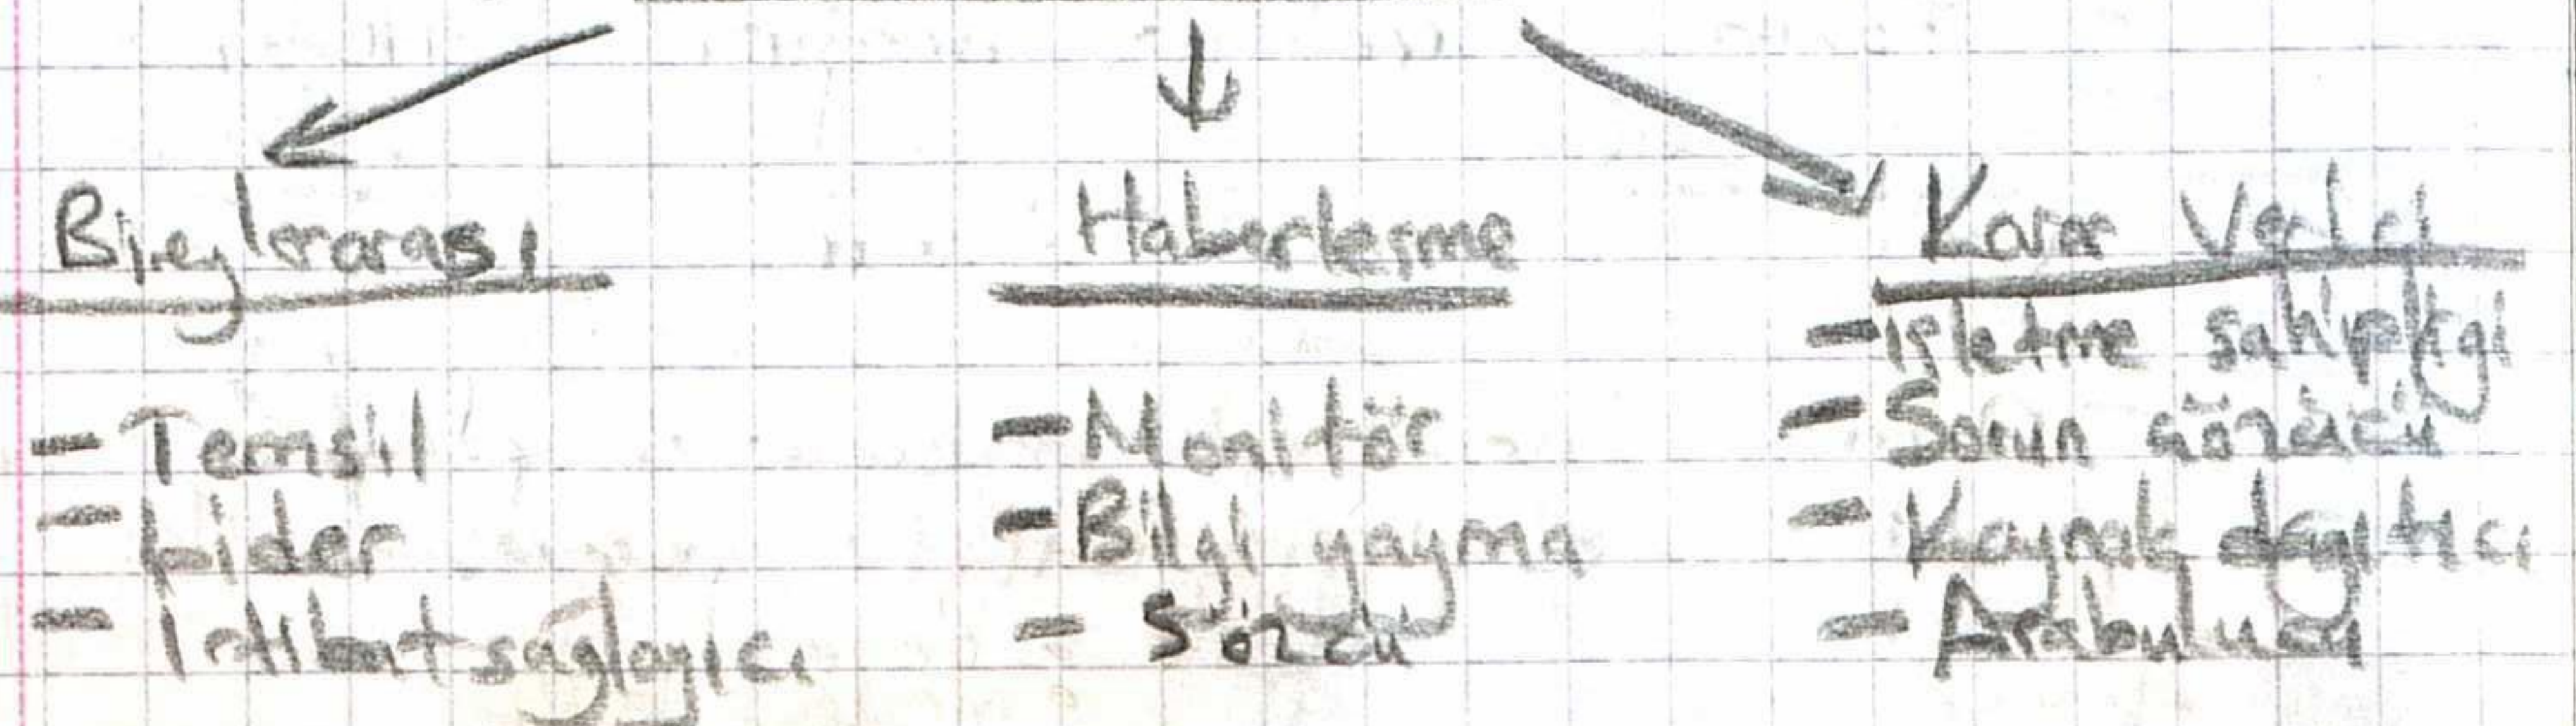 Bireylerarası
- Temsil
- Lider
- İrtibat sağlayıcı
Haberleşme
- Monitör
- Bilgi yayma
- Sözcü
Karar Verici
- işletme sahipliği
- Sorun çözücü
- Kaynak dağıtıcı
- Arabulucu